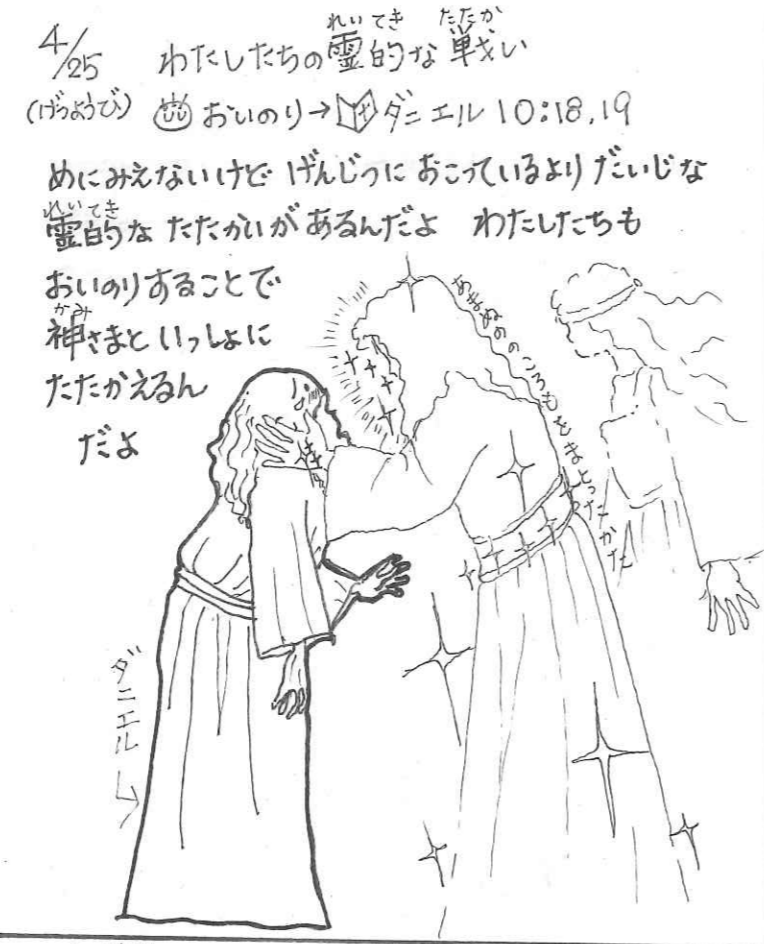 4/25 わたしたちの霊的な戦い
れいてき たたか
(げつようび) おいのり→ダニエル 10:18,19
めにみえないけど げんじつに おこっているより だいじな
れいてき
霊的な たたかいが あるんだよ わたしたちも
おいのりすることで
かみ
神さまと いっしょに
たたかえるん
だよ
あまぬののころもをまとったかた
ダニエル